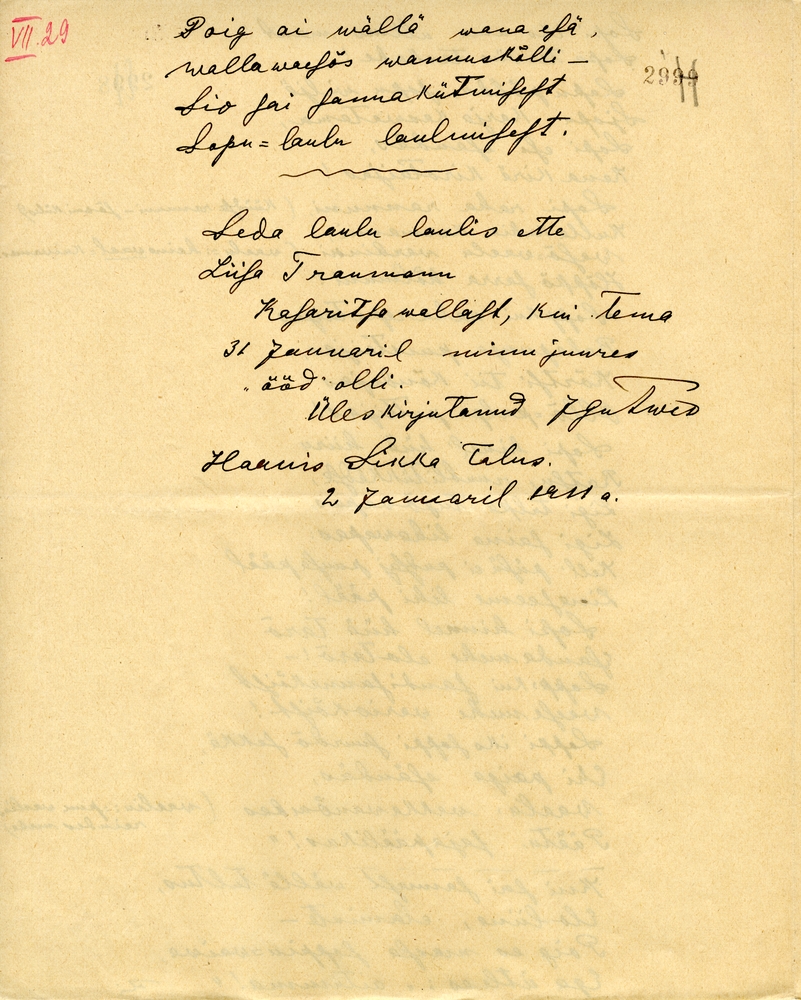 VII.29
Poig ai wällä wana esä,
wallawaesõs wannuskõlli —
Sio sai sannakütmisest
Sopu=laulu laulmisest.
Seda laulu laulis ette
Liisa Traumann
Kasaritsa wallast, kui tema
31 Januaril minu juures
„ööd" olli.
Üleskirjutanud
Haanis Sikka Talus.
2 Januaril 1911 a.